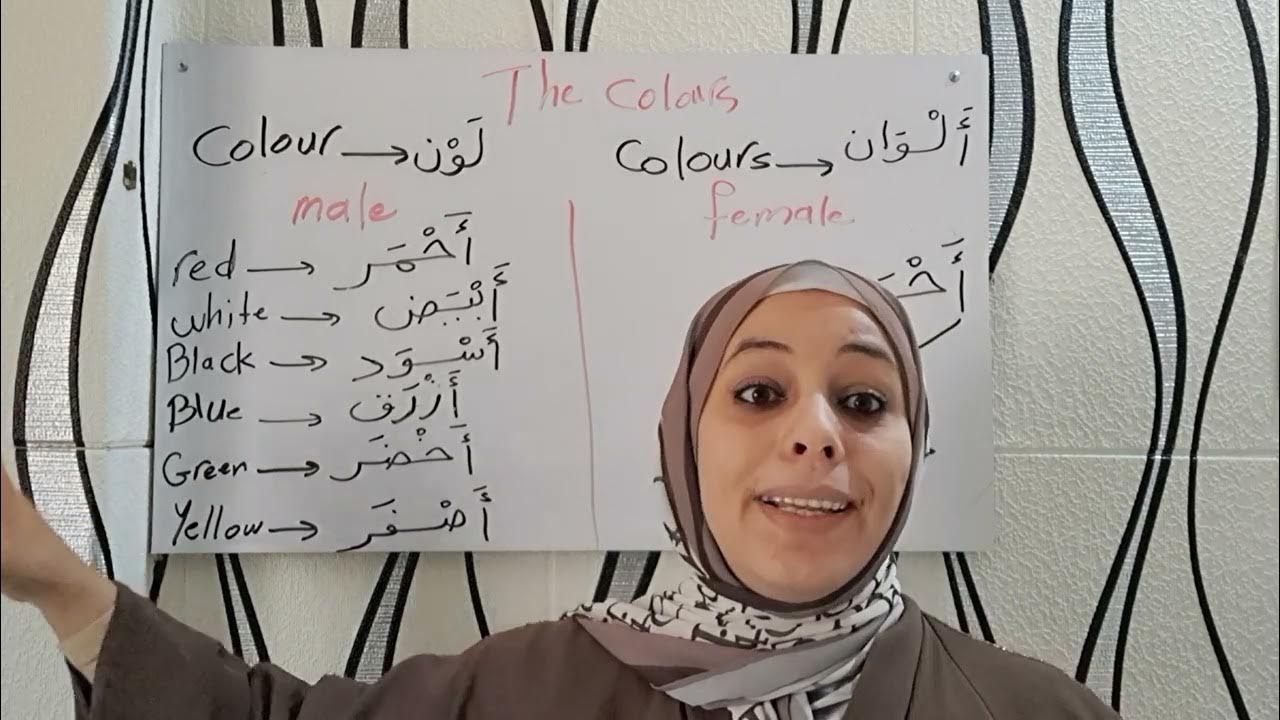 The Colours
Colour → لَوْن
Colours → أَلْوَان
male
female
red → أَحْمَر
white → أَبْيَض
Black → أَسْوَد
Blue → أَزْرَق
Green → أَخْضَر
Yellow → أَصْفَر